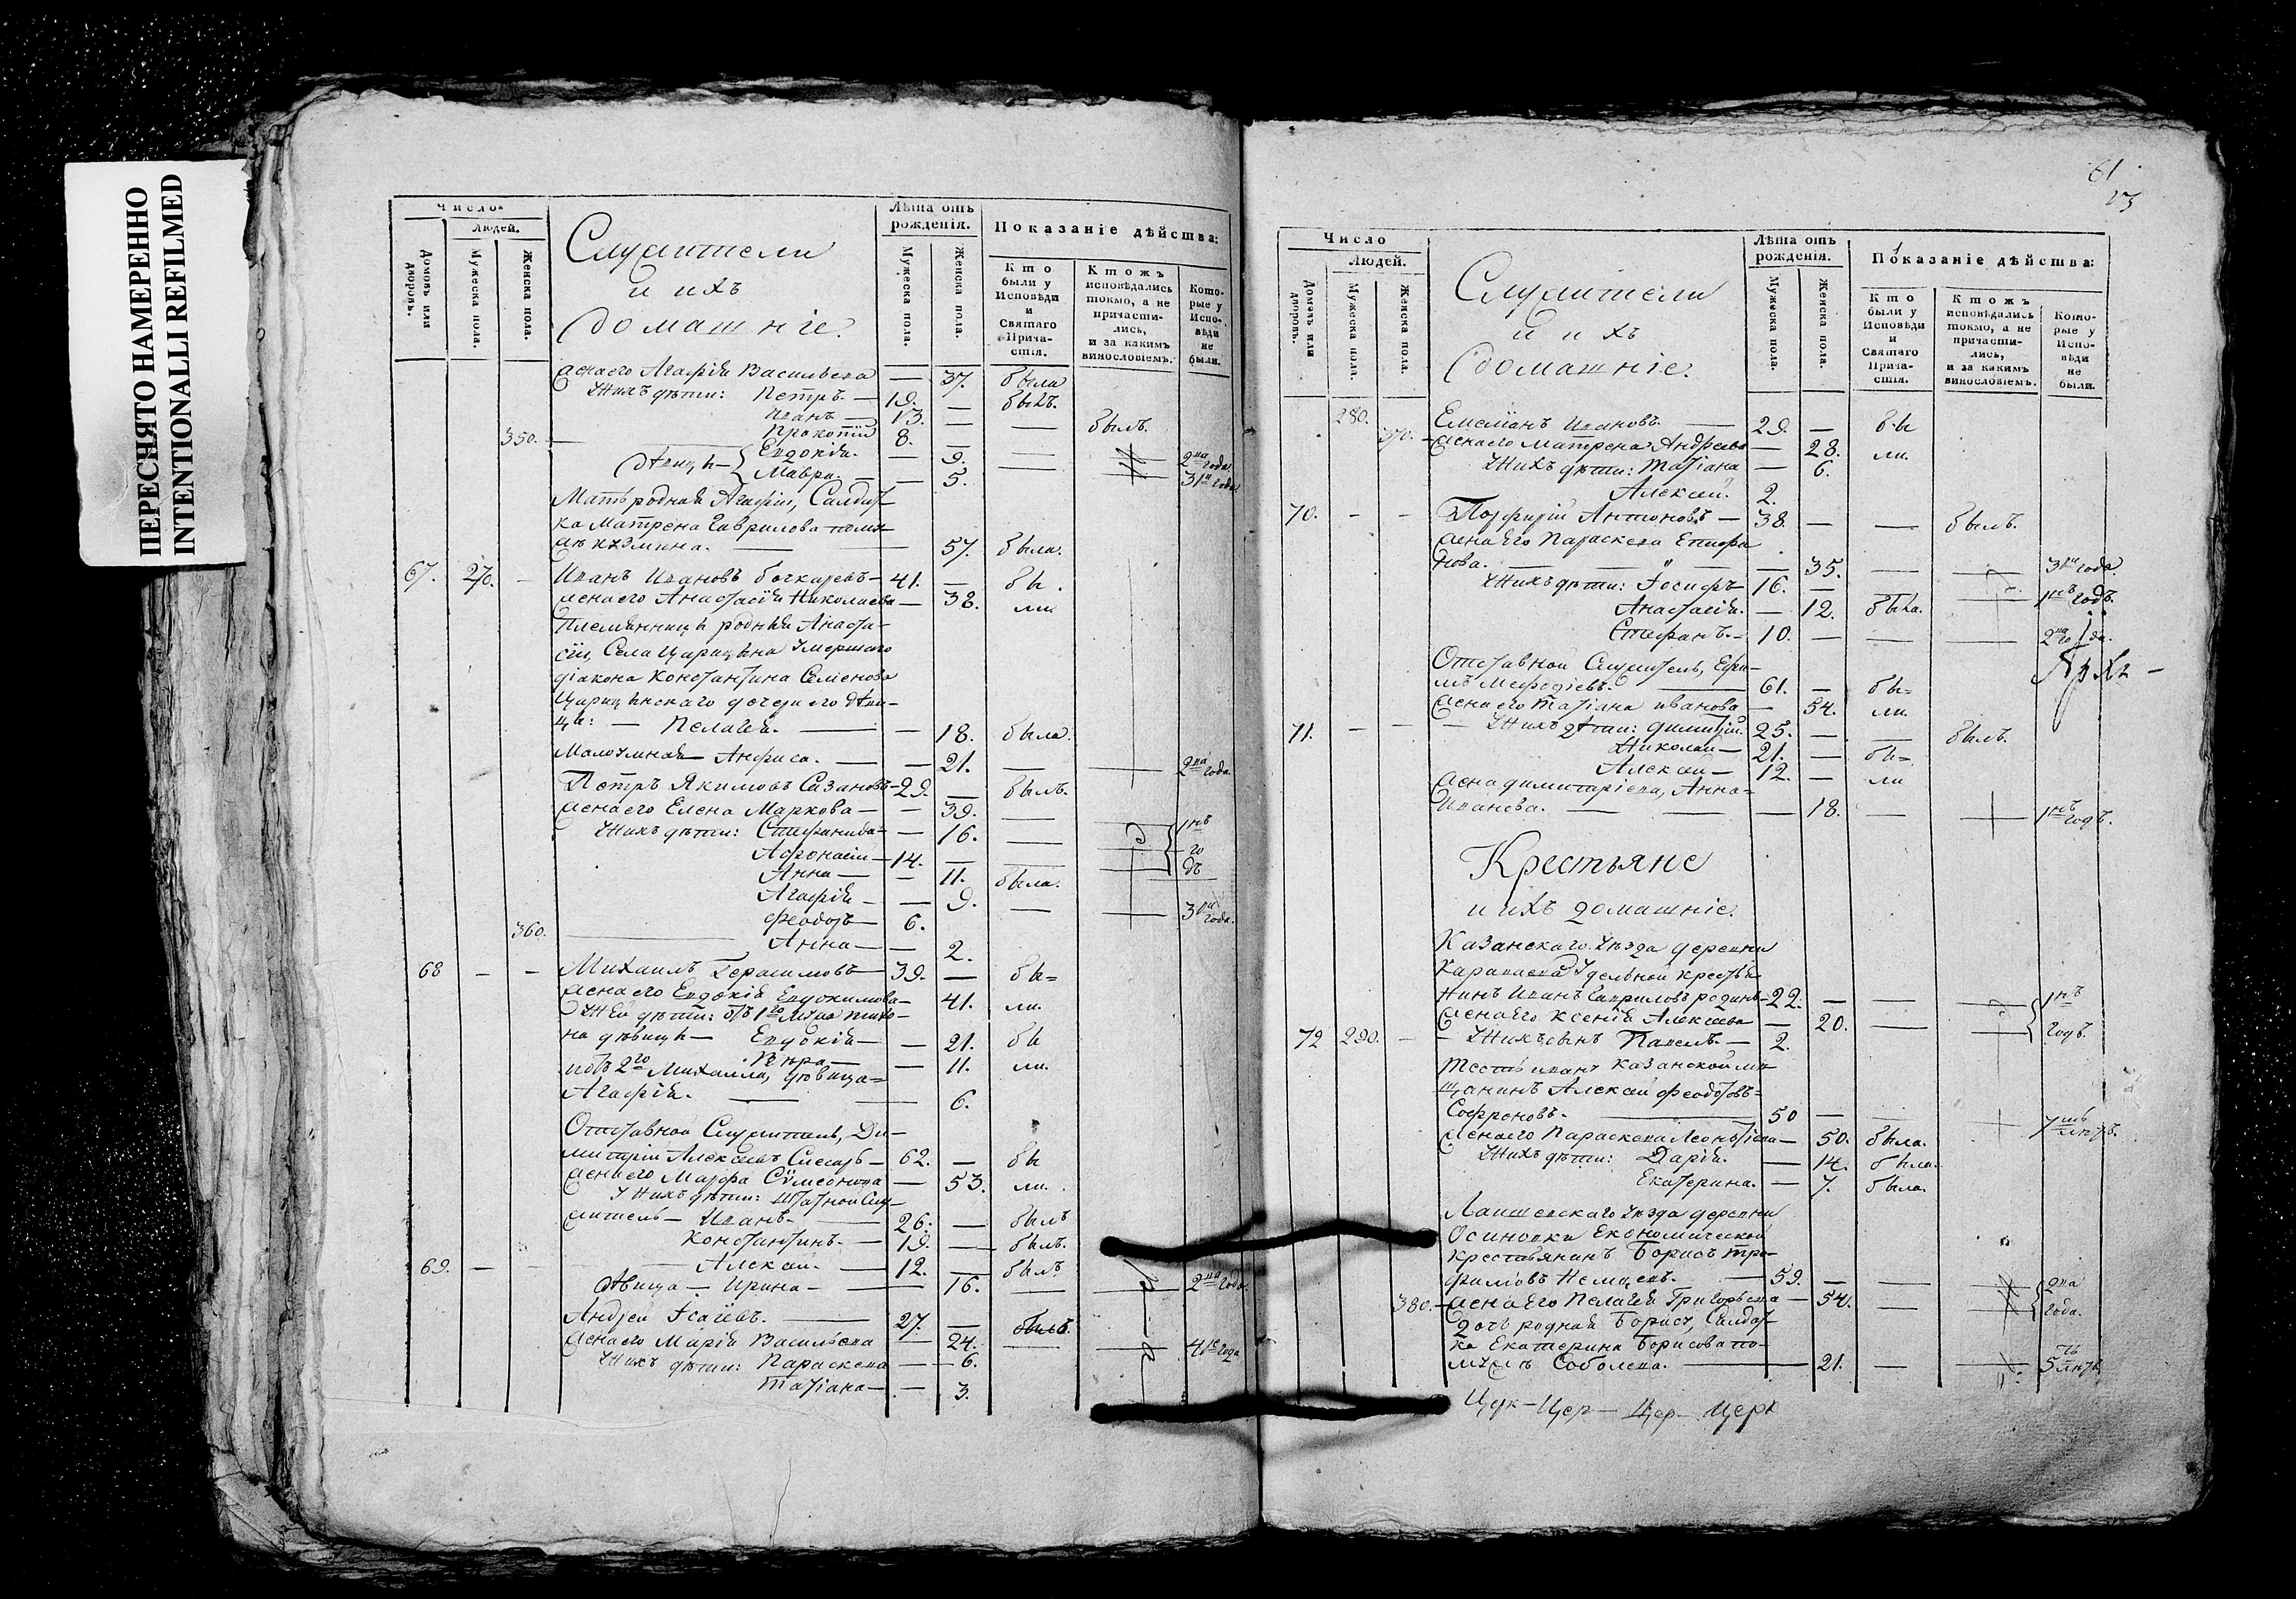 ПЕРЕСНЯТО НАМЕРЕННО
INTENTIONALLI REFILMED
Число
Людей.
Домовъ или дворовъ.
Мужеска пола.
Женска пола.
Служители
и ихъ
домашніе.
Лѣта отъ рожденія.
Мужеска пола.
Женска пола.
Показаніе дѣйства:
Кто были у Исповѣди и Святаго Причастія.
Ктожъ исповѣдались токмо, а не причастились, и за какимъ винословіемъ.
Которые у Исповѣди не были.
Жена его Агафія Васильева — 37. была
У нихъ дѣти: Петръ — 19. — былъ.
Иванъ — 13. — — былъ.
350. Прокопій 8. —
Дѣвицы — Евдокія. — 9. — 2 года.
Мавра — 5. 3 года.
Мать родная Агафіи, Салдат-
ка Матрена Гаврилова по му-
жѣ — 57. была.
67. 270. — Иванъ Ивановъ Бочкаревъ — 41. — бы
Жена его Анастасія Николаева — 38. ли
Племянница родная Анаста-
сіи, Села Царицына Умершаго
діакона Константина Семенова
Царицынскаго дочери его дѣви-
цы: — Пелагея. — — 18. была.
Малоумная — Анфиса. — — 21. — 2 года.
Петръ Якимовъ Сазановъ — 29. — былъ.
Жена его Елена Маркова — — 39. —
У нихъ дѣти: Стефанида — — 16. — 1нъ
Афонасій — 14. — — го
Анна — — 11. была. дъ
Агафія — — 9. — 3 года.
Феодоръ — 6.
360. Анна — — 2.
68 — — Михаилъ Герасимовъ — 39. — бы=
Жена его Евдокія Евдокимова — 41. ли.
У ней дѣти: отъ 1го мужа Тихо-
на дѣвицы — Евдокія — — 21. бы
— 11. ли.
и отъ 2го Михаила, дѣвица =
Агафія. — — 6.
Отставной Служитель, Ди-
митрій Алексѣевъ Слесарь — 62. — бы
Жена его Марфа Сумеонова — 53. ли.
У нихъ дѣти: Штатной Слу-
житель — Иванъ. — 26. — былъ
Константинъ. — 19. — былъ.
69. — Алексѣй. — 12. — былъ
Дѣвица — Ирина — — 16. — 2 года.
Андрей Исаіевъ. — 27. — былъ.
Жена его Марія Васильева — 24. — 4 года
У нихъ дѣти: Параскева — 6.
Татіана — — 3.
61
23
Число
Людей.
Домовъ или дворовъ.
Мужеска пола.
Женска пола.
Служители
и ихъ
домашніе.
Лѣта отъ рожденія.
Мужеска пола.
Женска пола.
Показаніе дѣйства:
Кто были у Исповѣди и Святаго Причастія.
Ктожъ исповѣдались токмо, а не причастились, и за какимъ винословіемъ.
Которые у Исповѣди не были.
280. Емеліанъ Ивановъ. — 29. — бы
370. Жена его Матрена Андреева — 28. ли.
У нихъ дѣти: Татіана — 6.
Алексѣй. 2.
70. — — Порфирій Антоновъ — 38. — — былъ.
Жена его Параскева Епифа
нова. — 35. — 3 года.
У нихъ дѣти: Іосифъ 16. — 1нъ годъ.
Анастасія. — 12. была.
Стефанъ. — 10. — — 2 года.
Отставной Служитель, Ефи-
мъ Мефодіевъ. — 61. — бы=
Жена его Татіана Иванова — 54. ли.
71. — — У нихъ дѣти: Димитрій. 25. — — былъ.
Николай — 21. — бы=
Алексѣй — 12. — ли
Жена Димитріева, Анна =
Иванова. — — 18. — 1нъ годъ.
Крестьяне
и ихъ домашніе.
Казанскаго Уѣзда деревни
Караваева Удельной крестья-
нинъ Иванъ Гавриловъ Родинъ — 22. — — 1нъ
Жена его Ксенія Алексѣева — 20. — годъ.
72 290. — — У нихъ сынъ Павелъ. — 2.
Тесть Иванъ Казанской мѣ-
щанинъ Алексѣй Феодотовъ =
Софроновъ. — 50 — — 7 лѣтъ.
Жена его Параскева Леонтіева — 50. была.
У нихъ дѣти: Дарія. — 14. была.
Екатерина. — 7. была.
Лаишевскаго Уѣзда деревни
Осиновки Економической
крестьянинъ Борисъ Тро-
фимовъ Немцевъ. — 59. — — 2
380. — Жена его Пелагея Григорьева — 54. — года.
Дочь родная Борису, Салдат-
ка Екатерина Борисова по-
мужѣ Соболева. — 21. — 5 лѣтъ
Цер — Цер — Цер — Церк